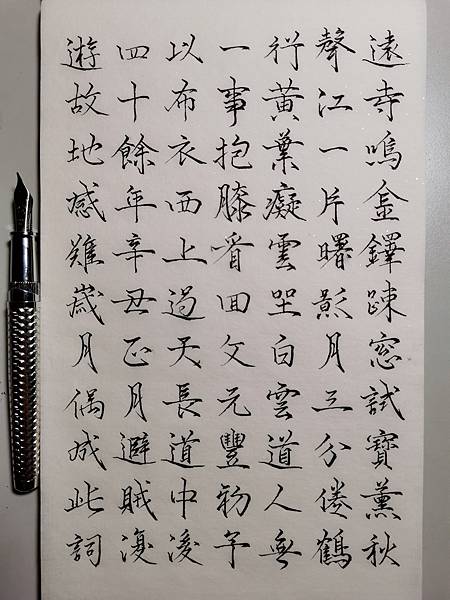 遠寺鳴金鐸踈窓試寶薰秋
聲江一片曙影月三分倦鶴
行黃葉癡雲坐白雲道人無
一事抱膝看回文元豐初予
以布衣西上過天長道中後
四十餘年辛丑正月避賊復
遊故地感難歲月偶成此詞